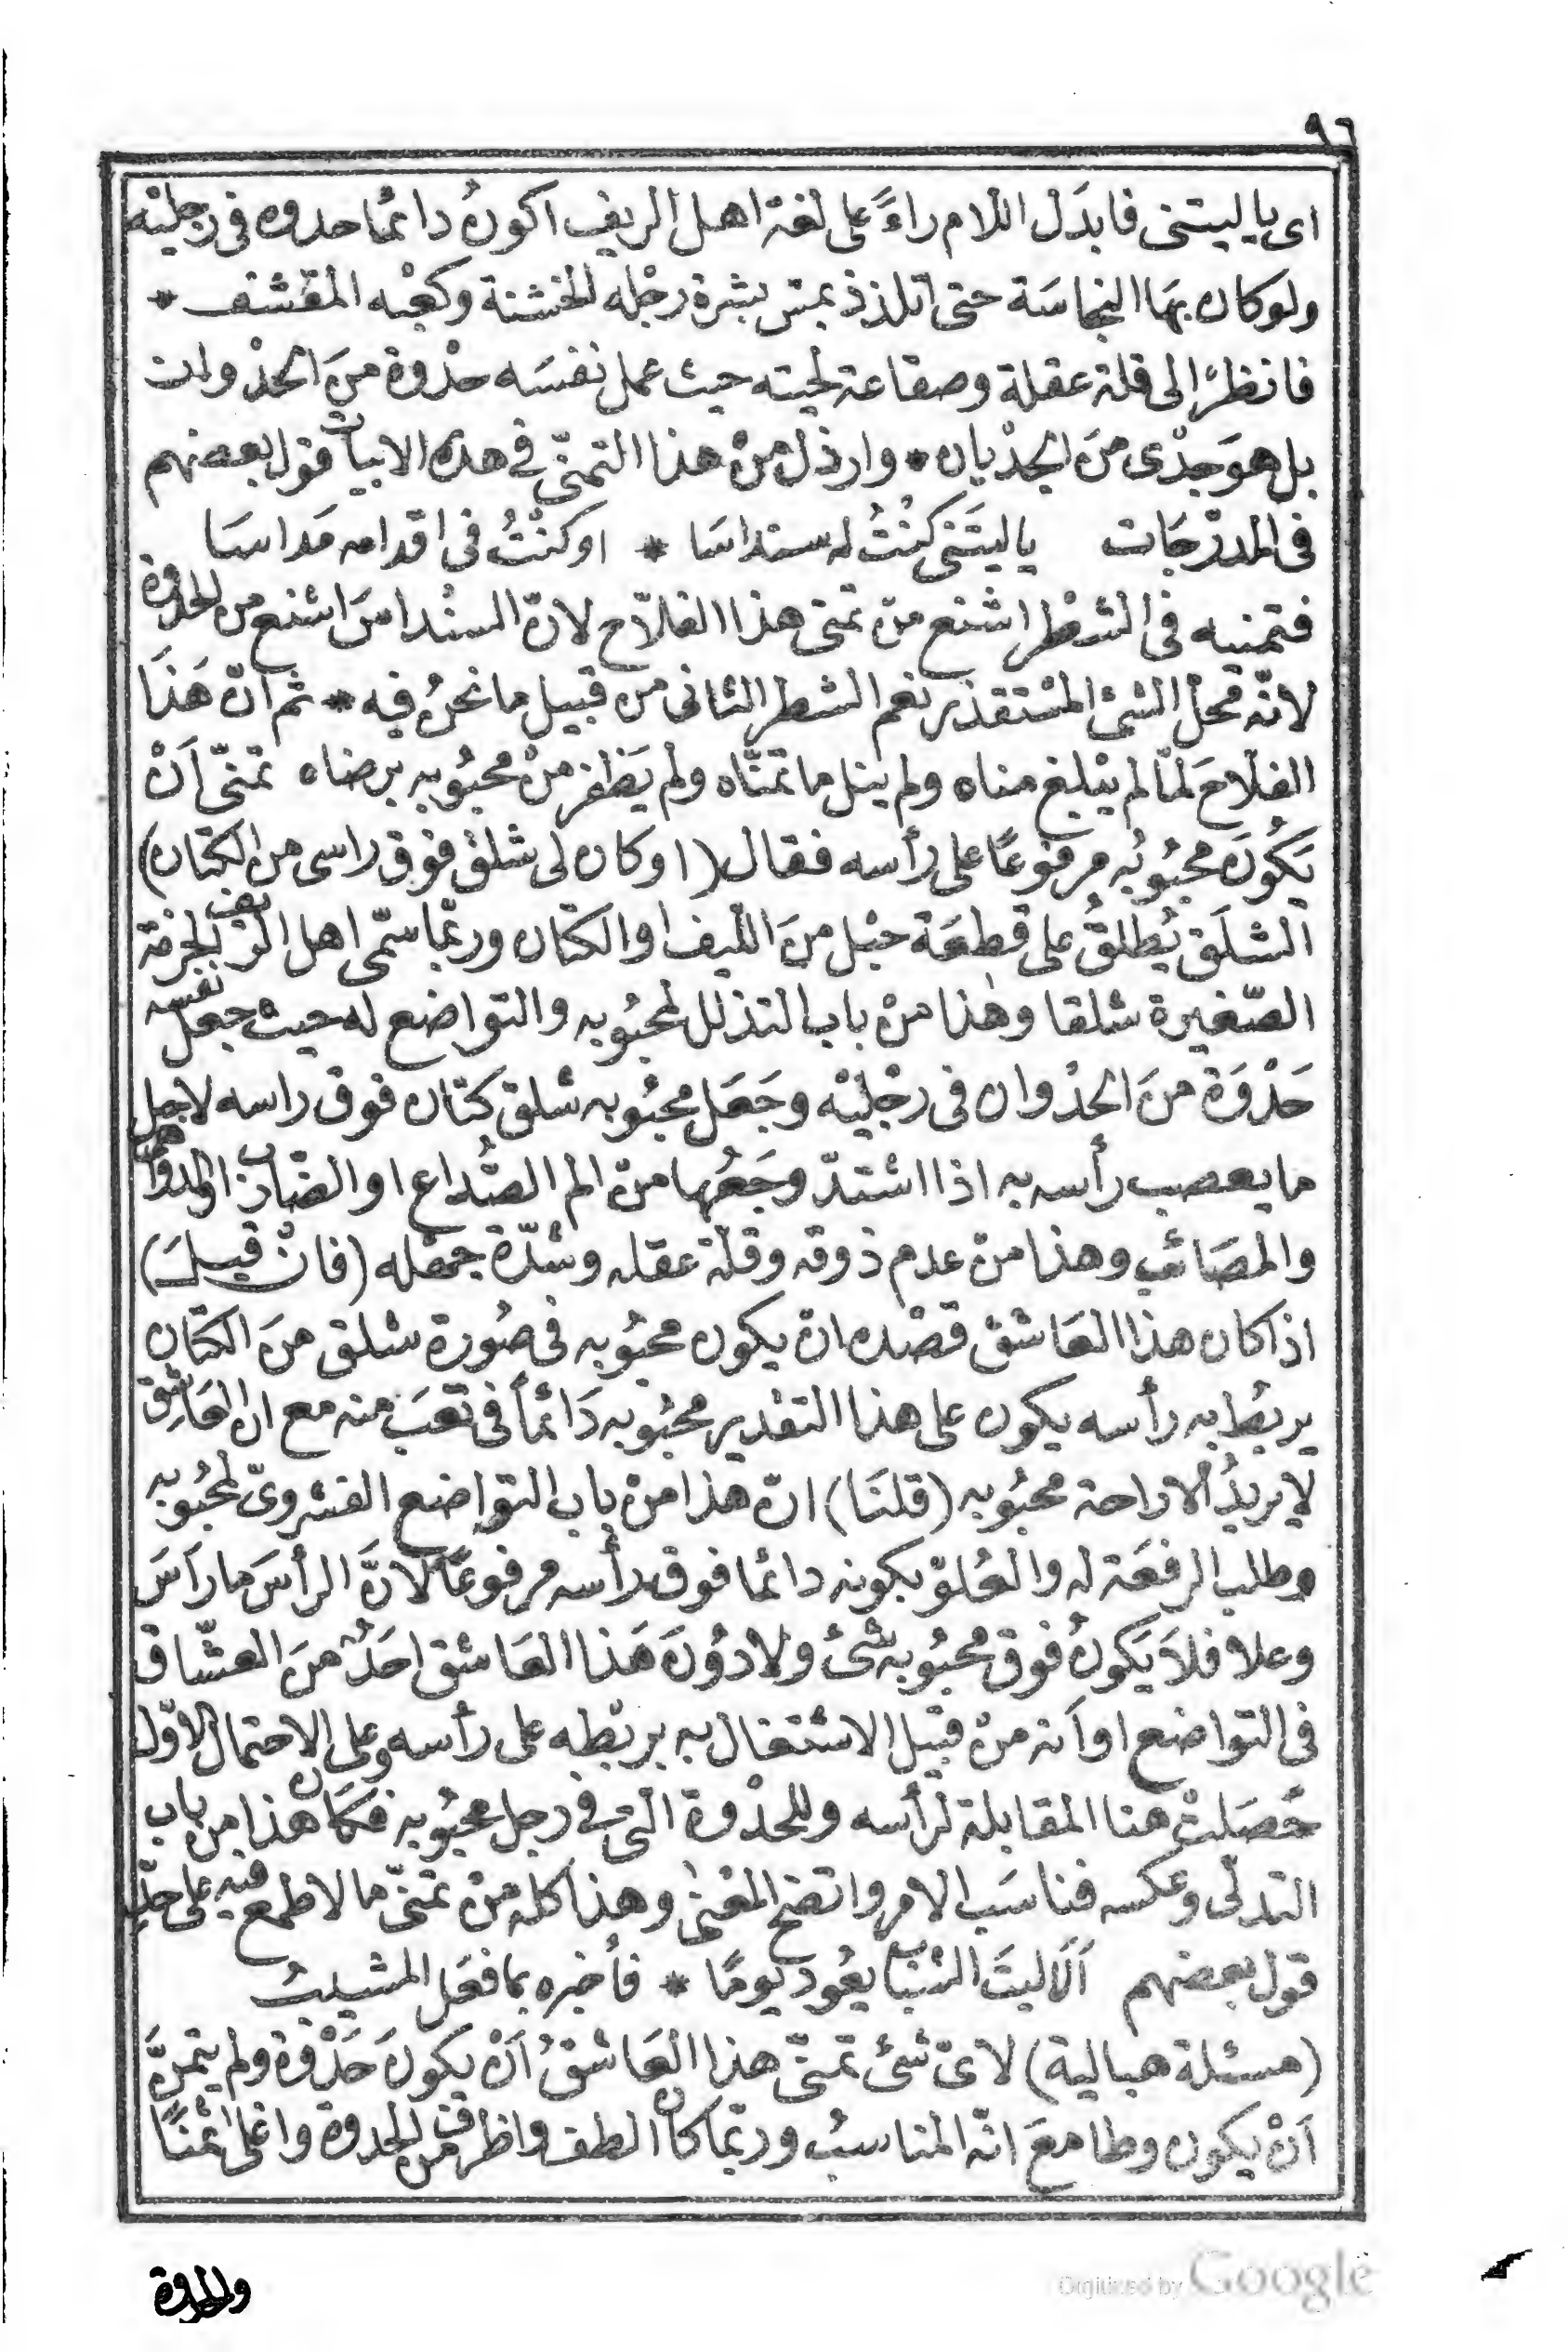 ٩٦
اى ياليتنى فابدَل اللام راءً على لغة اهل الريف اكونُ دائمًا حدوه فى رجليْه
ولوكان بهَا النجاسَة حتى اتلذذ بمسّ بشرة رجْله الخشنة وكعْبه المقشف *
فانظرْ الى قلة عقلة وصقاعة لحيته حيث عمل نفسَه حدْوة منَ الحدْ وان
بل هوَ جدْى منَ الجدْيان * وارذل منْ هذا التمنّى فى هذه الابيات قول بعضهم
فى المدرّجَات ياليتَنى كنْتُ له سنداسَا * اوكنْتُ فى اقدامه مَداسَا
فتمنيه فى الشطْر اشنع منْ تمنى هذا الفلاّح لانّ السنْداسَ اشنع من الحدْوة
لانّه محلّ الشئ المسْتقذر نعم الشطر الثانى من قبيل ما نحنُ فيه * ثم انّ هَذا
الفلاحَ لمّا لم يبْلغ مناه ولم ينل ما تمنّاه ولم يَظْفر منْ محبُوبه برضاه تمنّى اَنْ
يَكُونَ محبُوبُه مرفوعًا على رأسه فقال (اوكان لى شلقْ فوق راسى من الكتان)
الشلَق يُطلقُ على قطعَة حبْل منَ اللّيف او الكتّان وربّما سمّى اهل الريف الحزمة
الصّغيرة شلقا وهٰذا منْ باب التذلل لمحبُوبه والتواضع له حيث جعل نفسه
حَدْوَة منَ الحدْوان فى رجْليْه وجَعَل محبُوبه شلق كتّان فوق راسه لاجل
ما يعصب رأسه به اذا اشتدّ وجَعُها منْ الم الصُّداع او الضّارب او الهموم
والمصَائب وهذا منْ عدم ذوقه وقلّة عقله وشدّة جهْله (فانْ قيلَ)
اذا كان هذا العَاشقْ قصْده انْ يكون محبُوبه فى صُورة شلق منَ الكتّان
يربُط به رأسه يكون على هذا التقْدير محبُوبه دَائمًا فى تعَب منه مع ان العَاشق
لا يريدُ الاّ راحة محبُوبه (قلنَا) انّ هذا منْ باب التواضع الفشروىّ لمحبُوبه
وطلب الرفعَة له والعُلوّ بكونه دائما فوق رأسه مرفوعًا لانَّ الرأسَ ما راَسَ
وعلا فلاَ يَكونُ فوق محبُوبه شئ ولا دُونَ هَذا العَاشق احَدُ منَ العشّاق
فى التواضع او اَنه منْ قبيل الاشتغال به بربْطه على رأسه وعلى الاحتمال الاوّل
حَصَلتْ هنا المقابلة لرأسه وللحدْوة التى فى رجل محبُوبه فكان هذا من باب
التدلّى وعكسه فناسَب الامر واتضح المعْنٰى وهذا كله منْ تمنّى ما لا طمع فيه على حدّ
قول بعضهم اَلاَ ليتَ الشباب يعُود يومًا * فأخبره بما فعَل المشيبُ
(مسئلة هبالية) لاىّ شئ تمنّى هذا العَاشقُ اَنْ يكونَ حَدْوة ولم يتمنَّ
اَنْ يكون وطا معَ انّه المناسبُ وربّما كان الطف واظرف من الحدوة واغلى ثمْنًا
والحدوة
Digitized by Google